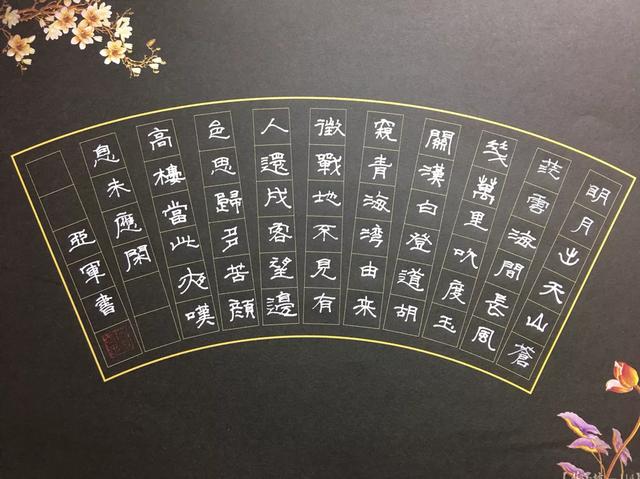 明月出天山蒼
茫雲海間長風
幾萬里吹度玉
關漢白登道胡
窺青海湾由来
徵戰地不見有
人還戍客望邊
邑思歸多苦顔
高樓當此夜嘆
息未應閑
亚軍書